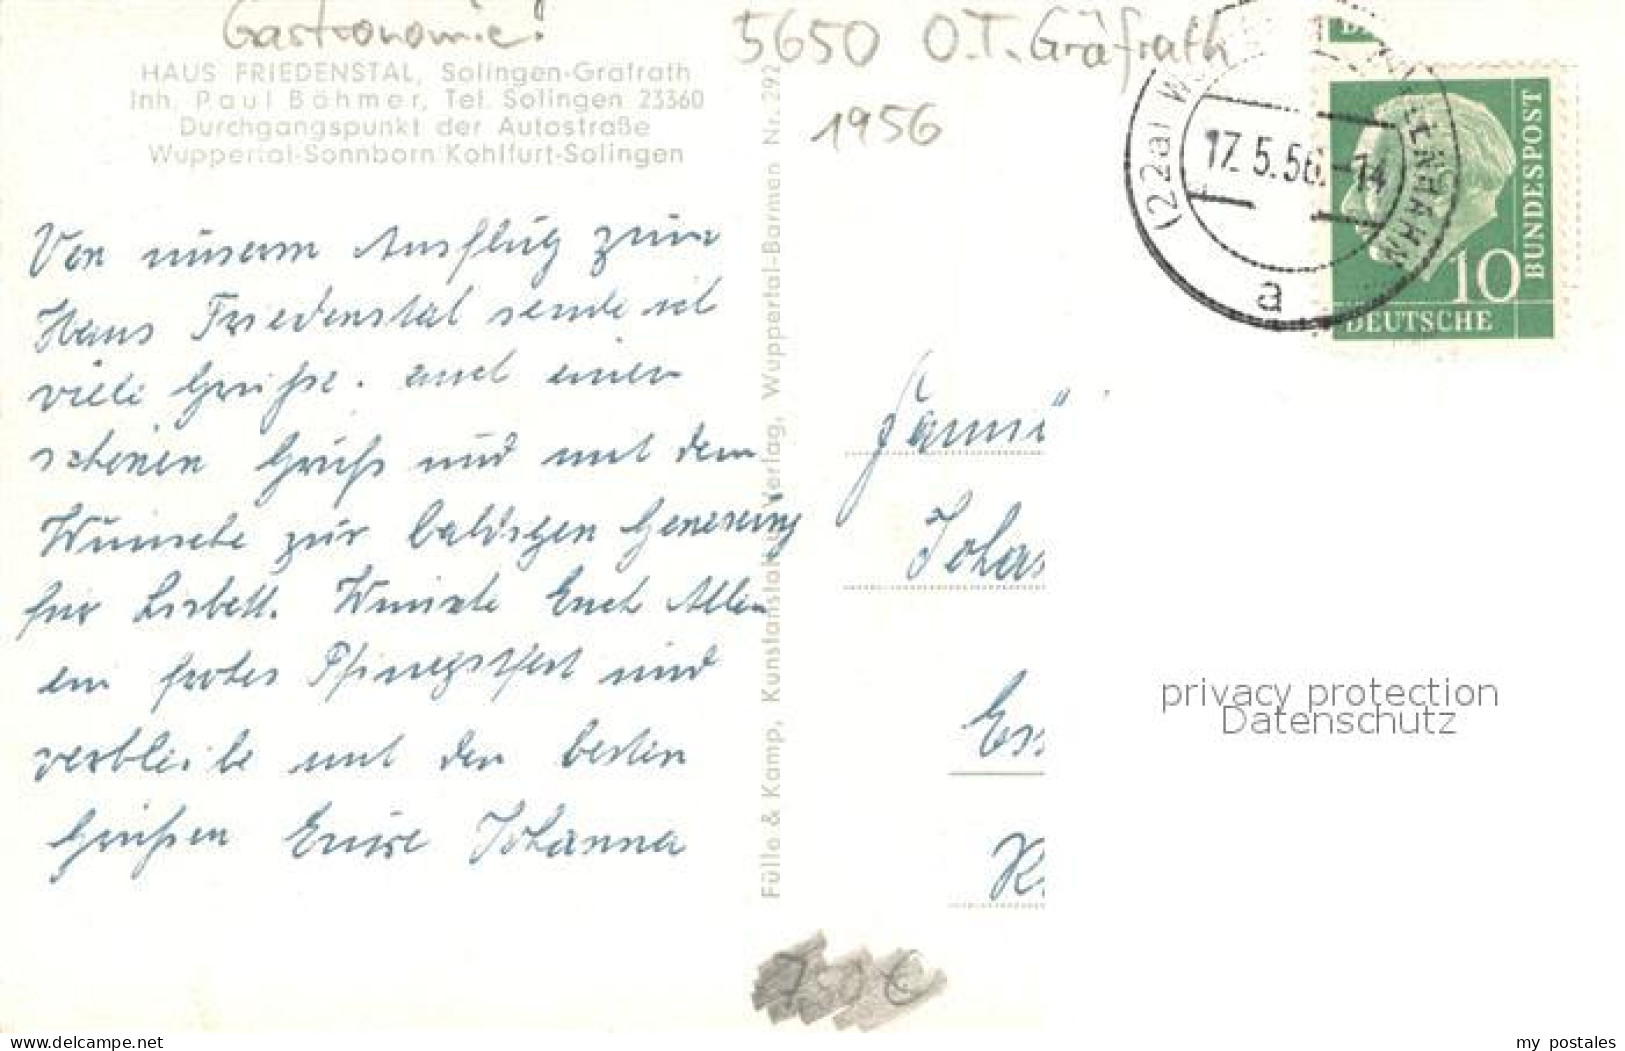 Gastronomie!
5650 O.T. Gräfrath
1956
HAUS FRIEDENSTAL, Solingen-Gräfrath
Inh. Paul Böhmer, Tel. Solingen 23360
Durchgangspunkt der Autostraße
Wuppertal-Sonnborn Kohlfurt-Solingen
Von unserm Ausflug zum
Haus Friedenstal sende ich
viele Grüße. auch einen
schönen Gruß und mit dem
Wunsche zur baldigen Genesung
für Lisbett. Wünsche Euch Allen
ein frohes Pfingstfest und
verbleibe mit den besten
Grüßen Eure Johanna
Fülle & Kamp, Kunstanstalt u. Verlag, Wuppertal-Barmen Nr. 292
(22a)
17.5.56.-14
a
BUNDESPOST
10
DEUTSCHE
Johan
Ess
privacy protection
Datenschutz
7,0 €
www.delcampe.net
my_postales